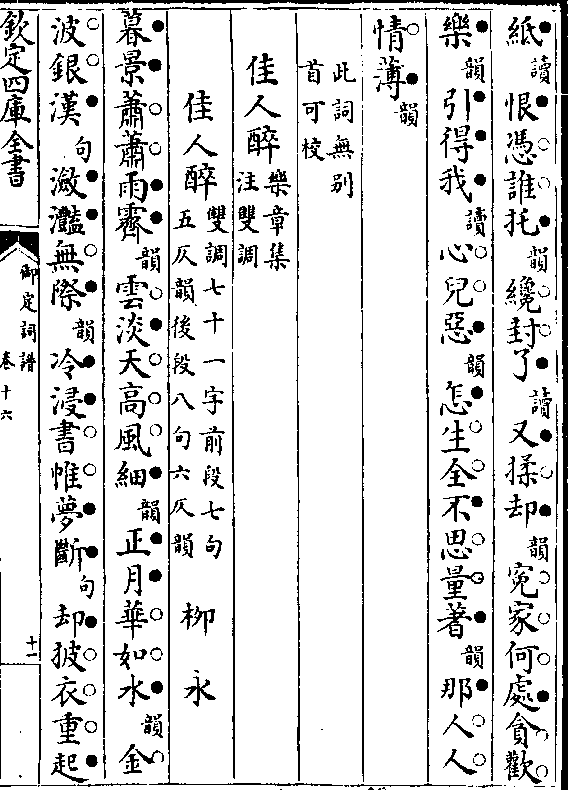 紙讀恨憑誰托韻纔封了讀又揉却韻寃家何處貪歡
樂韻引得我讀心兒惡韻怎生全不思量著韻那人人
情薄韻
此詞無别
首可校
佳人醉樂章集
注雙調
佳人醉雙調七十一字前段七句
五仄韻後段八句六仄韻柳永
暮景蕭蕭雨霽韻雲淡天高風細韻正月華如水韻金
波銀漢句瀲灧無際韻冷浸書帷夢斷句却披衣重起
欽定四庫全書
御定詞譜
卷十六
十一